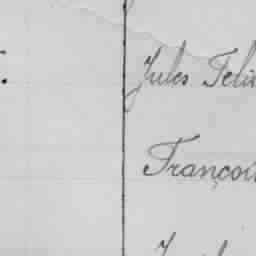 Jules Feli
Françoi